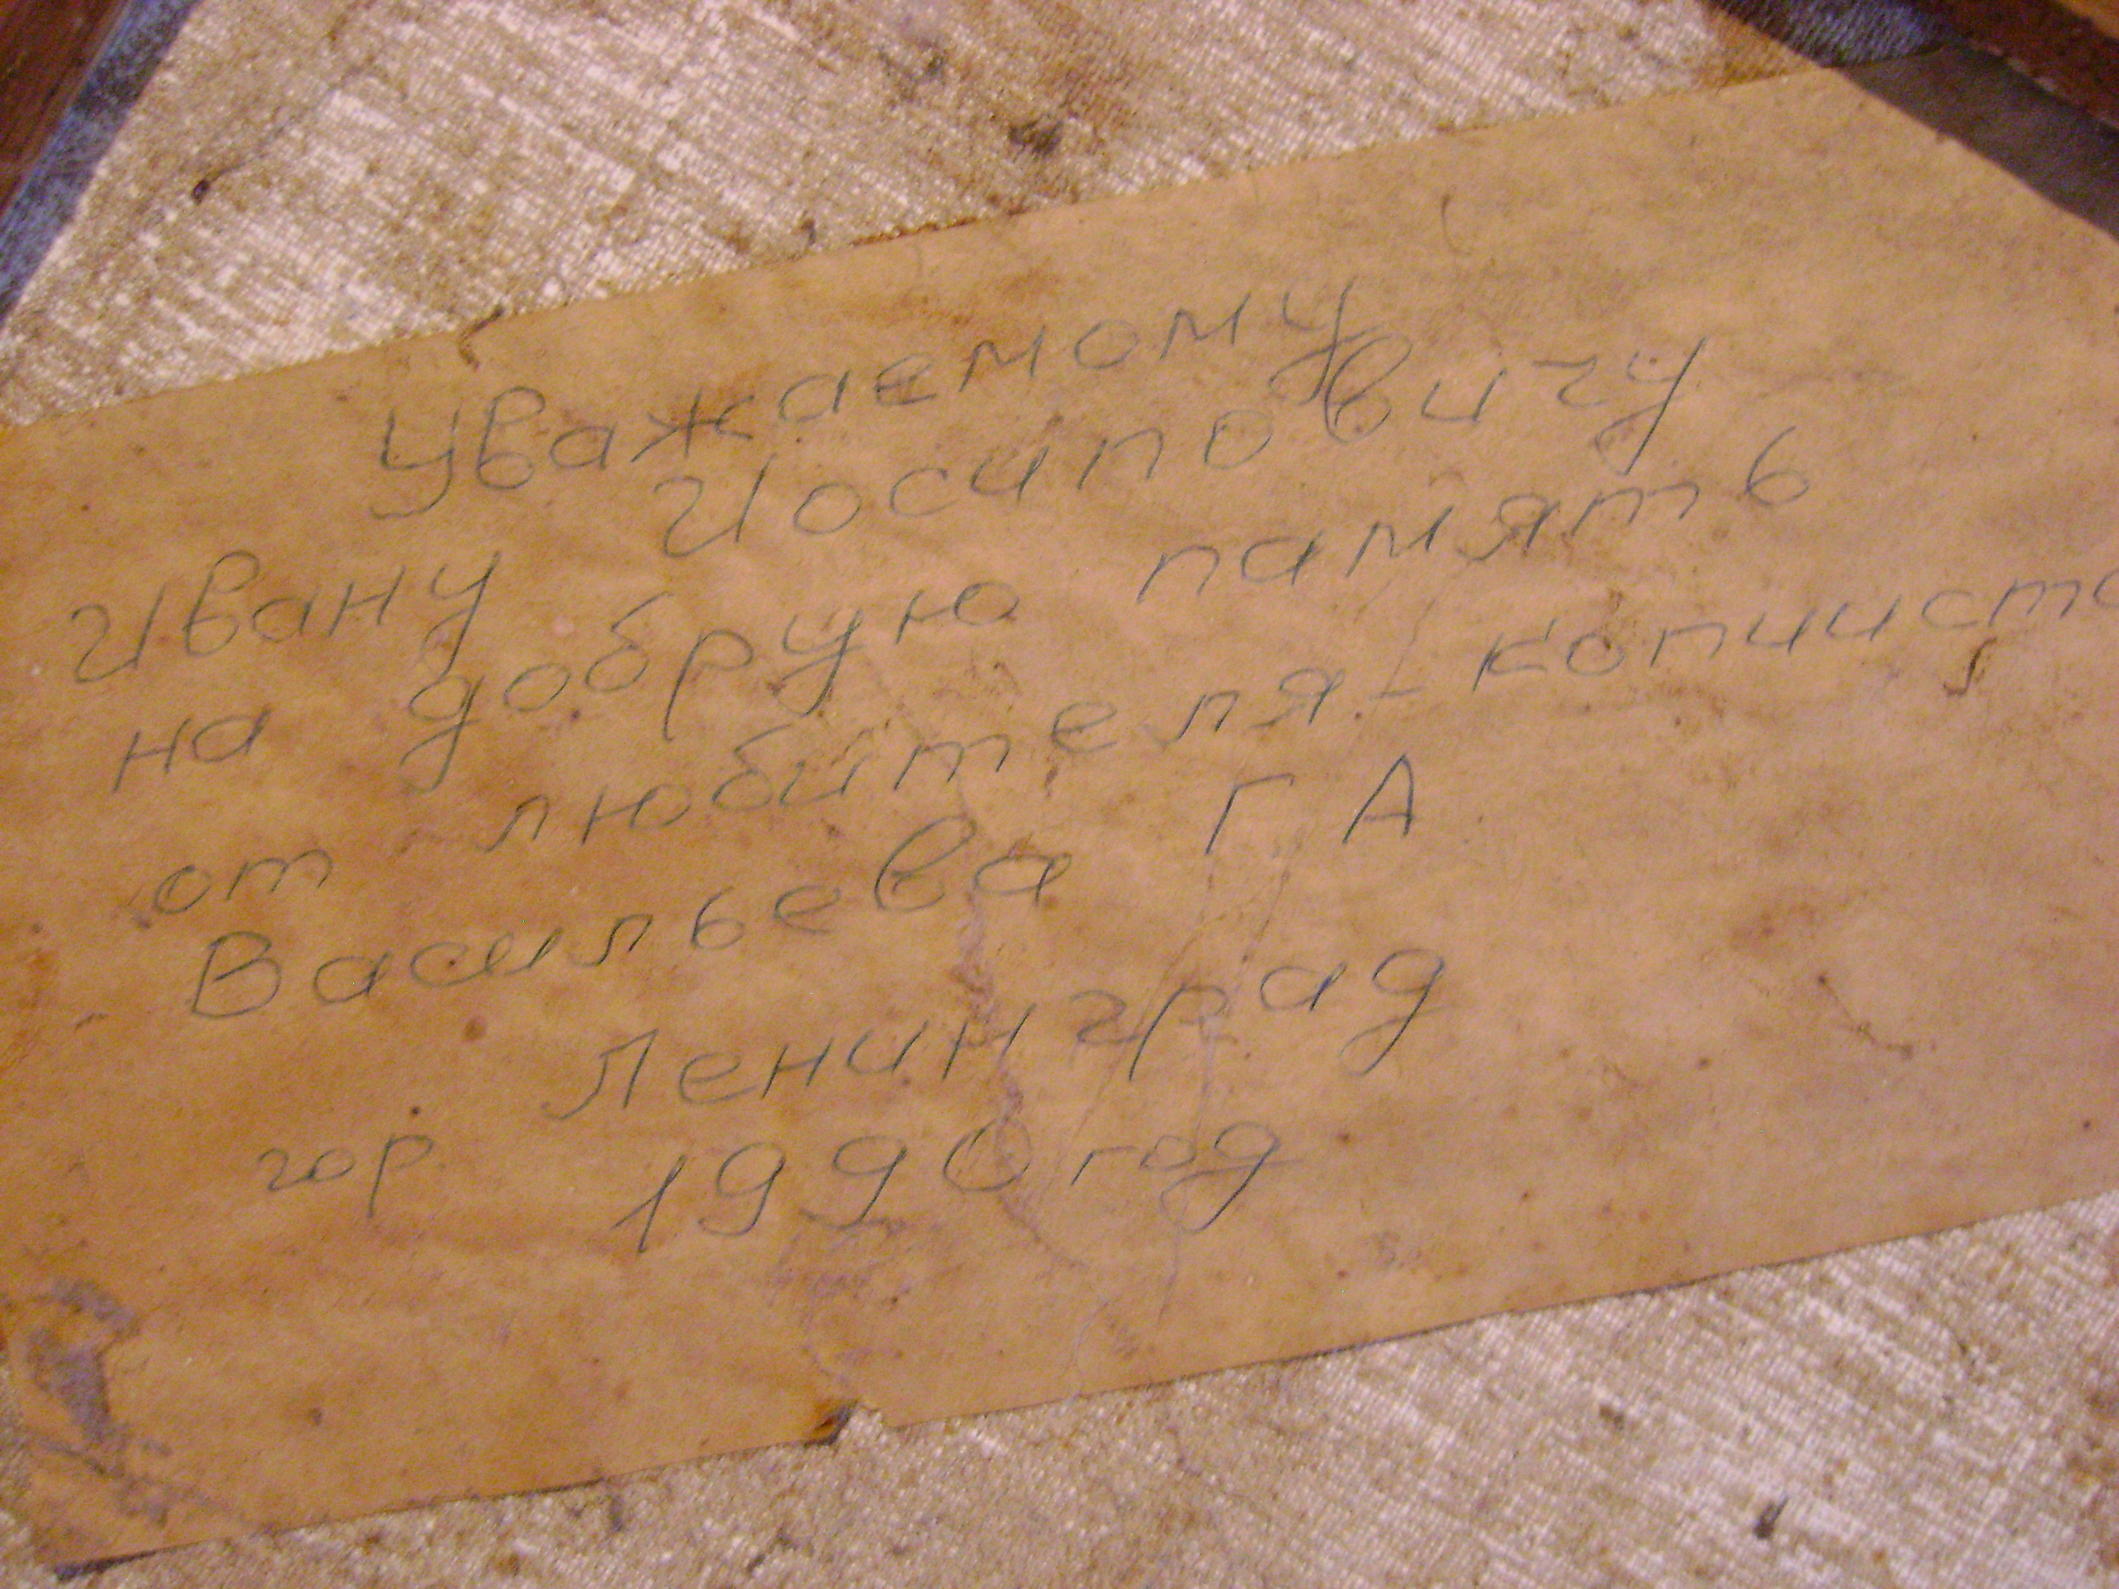 Уважаемому
Ивану Иосиповичу
на добрую память
от любителя-кописта
Васильева Г А
гор Ленинград
1990 год